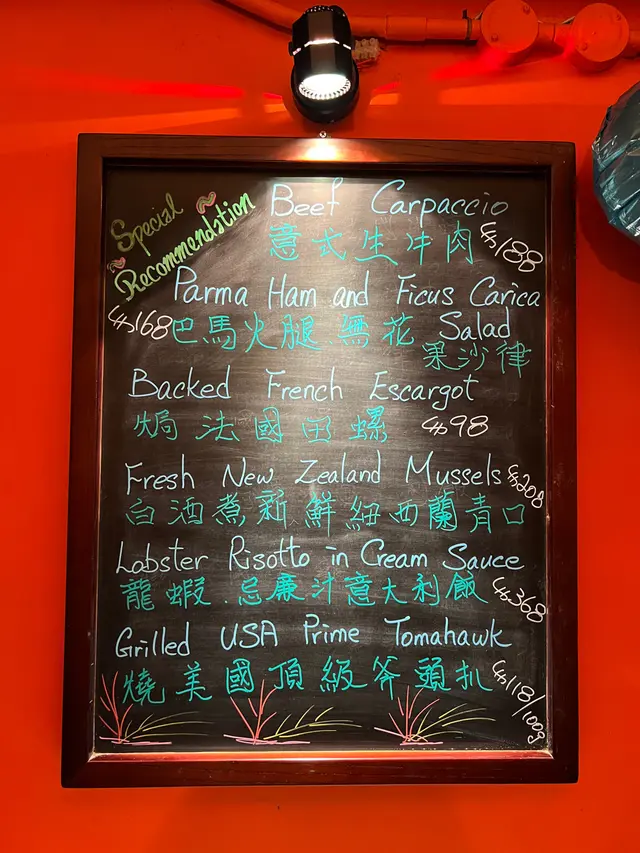 Special
Recommendation
Beef Carpaccio
意式生牛肉 $188
Parma Ham and Ficus Carica
$168 巴馬火腿無花 Salad
果沙律
Backed French Escargot
焗法國田螺 $98
Fresh New Zealand Mussels $208
白酒煮新鮮紐西蘭青口
Lobster Risotto in Cream Sauce
龍蝦忌廉汁意大利飯 $368
Grilled USA Prime Tomahawk
燒美國頂級斧頭扒 $118/100g